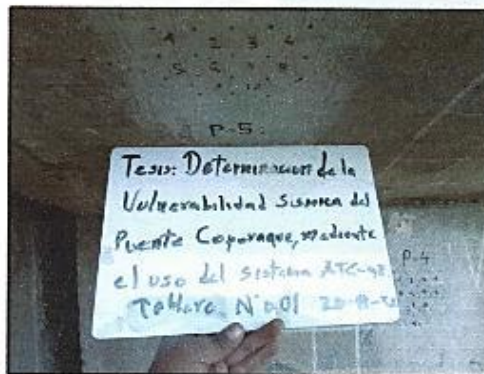 1 2 3 4
5 6
P-5
Tesis: Determinacion de la
Vulnerabilidad Sismica del
Puente Coporaque, mediante
el uso del sistema ATC-
Tablero N° 001 20-11-
P-4